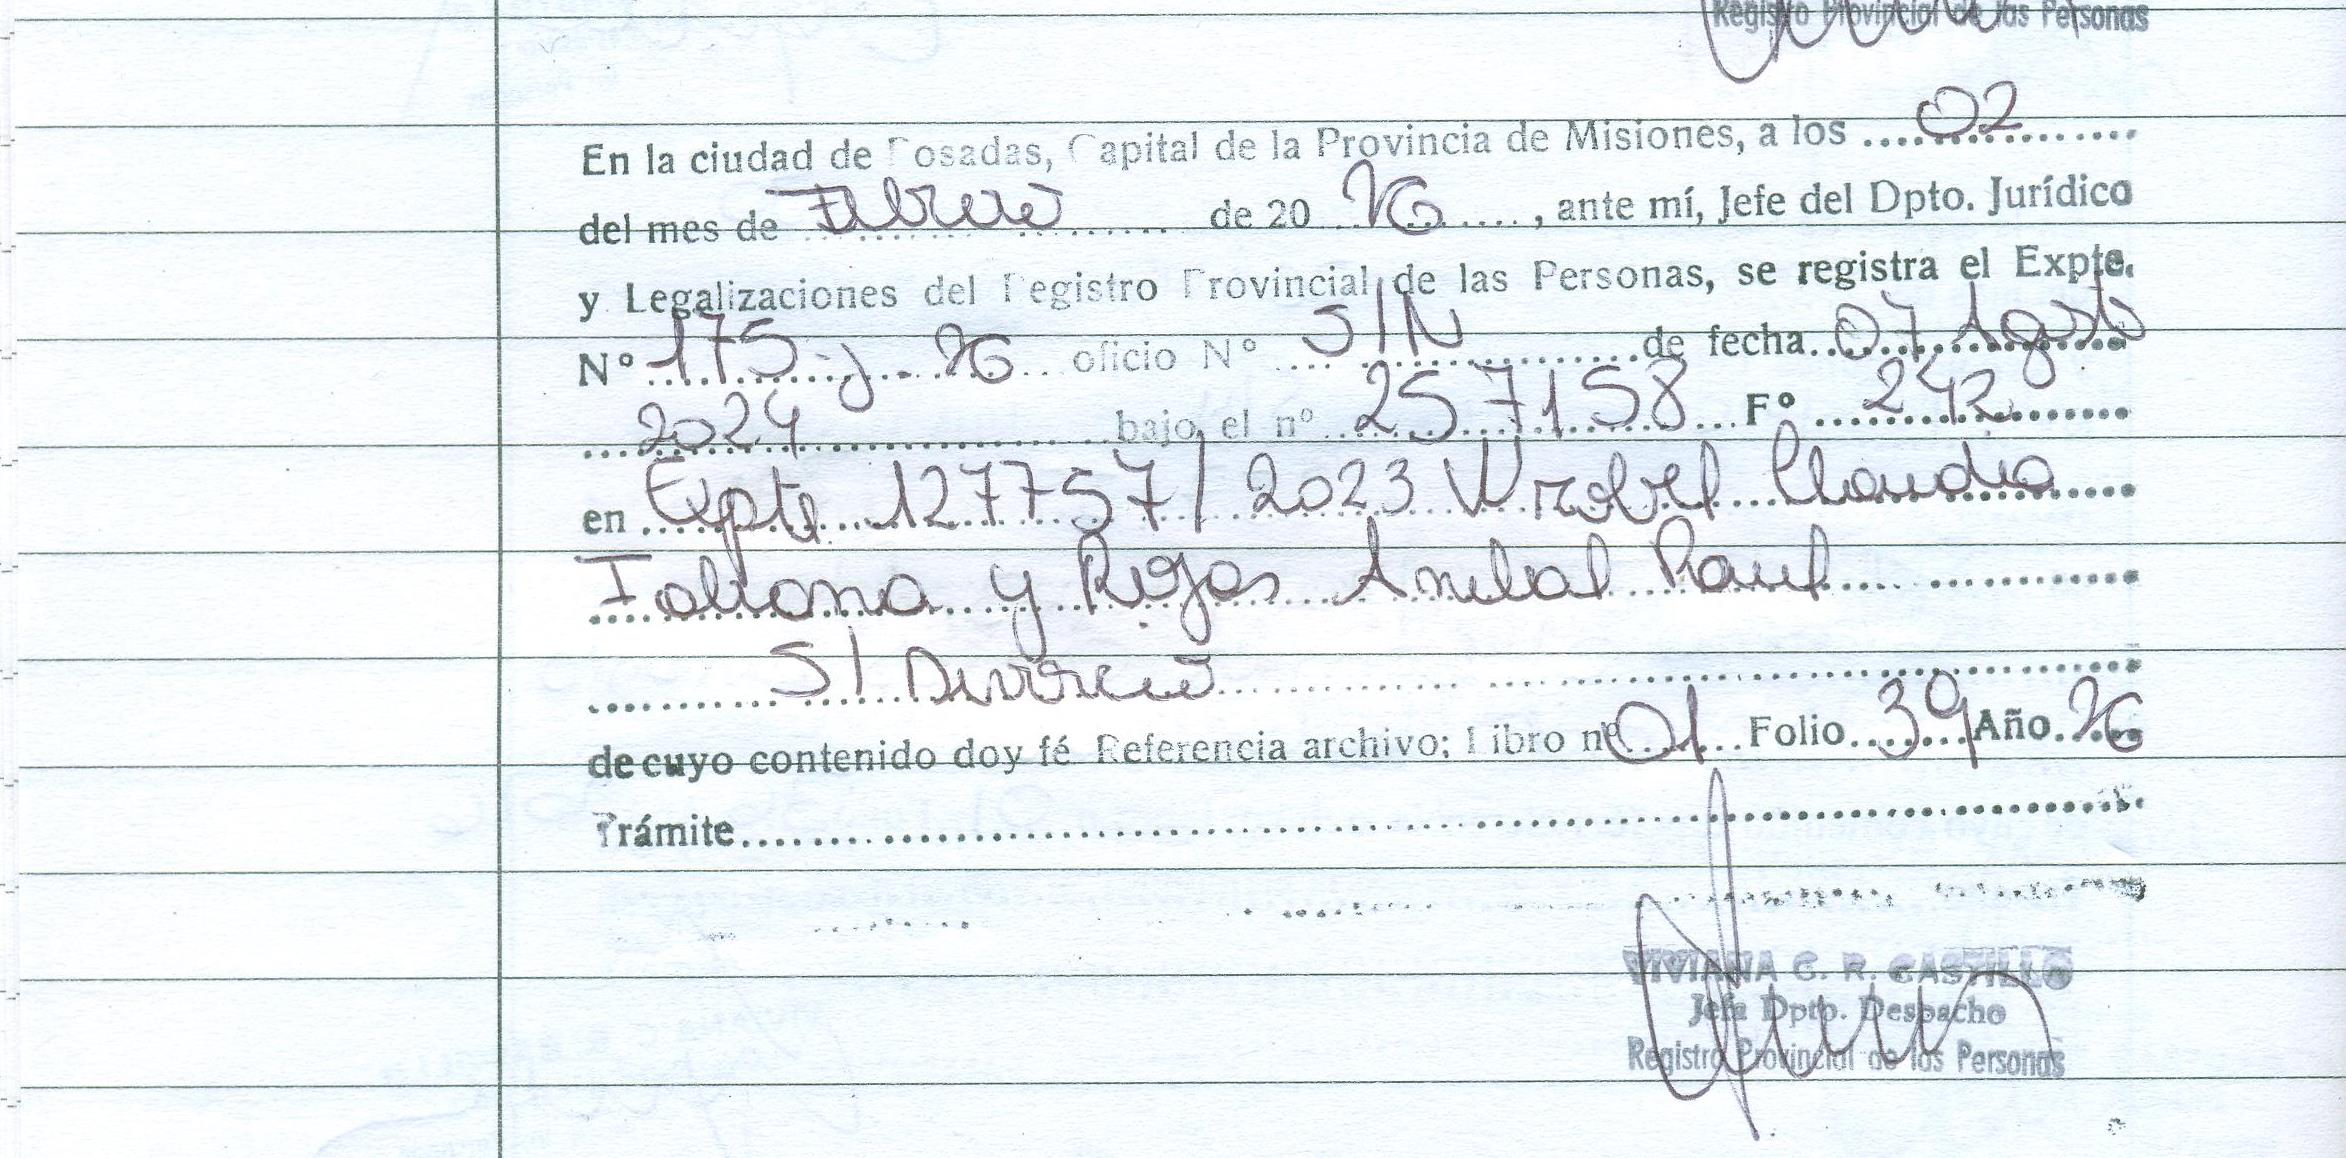 Registro Provincial de las Personas
En la ciudad de Posadas, Capital de la Provincia de Misiones, a los ....02........
del mes de Febrero de 20 26 , ante mí, Jefe del Dpto. Jurídico
y Legalizaciones del Registro Provincial de las Personas, se registra el Expte.
Nº 175-J-26 oficio Nº S/N de fecha 07 Agosto
2024 bajo el nº 257158 Fº 242
en Expte 127757/2023 Wrobel Claudia
Fabiana y Rojas Anibal Raul
S/ Divorcio
de cuyo contenido doy fé Referencia archivo; Libro nº 01 Folio 39 Año 26
Trámite
VIVIANA G. R. CASTILLO
Jefa Dpto. Despacho
Registro Provincial de las Personas